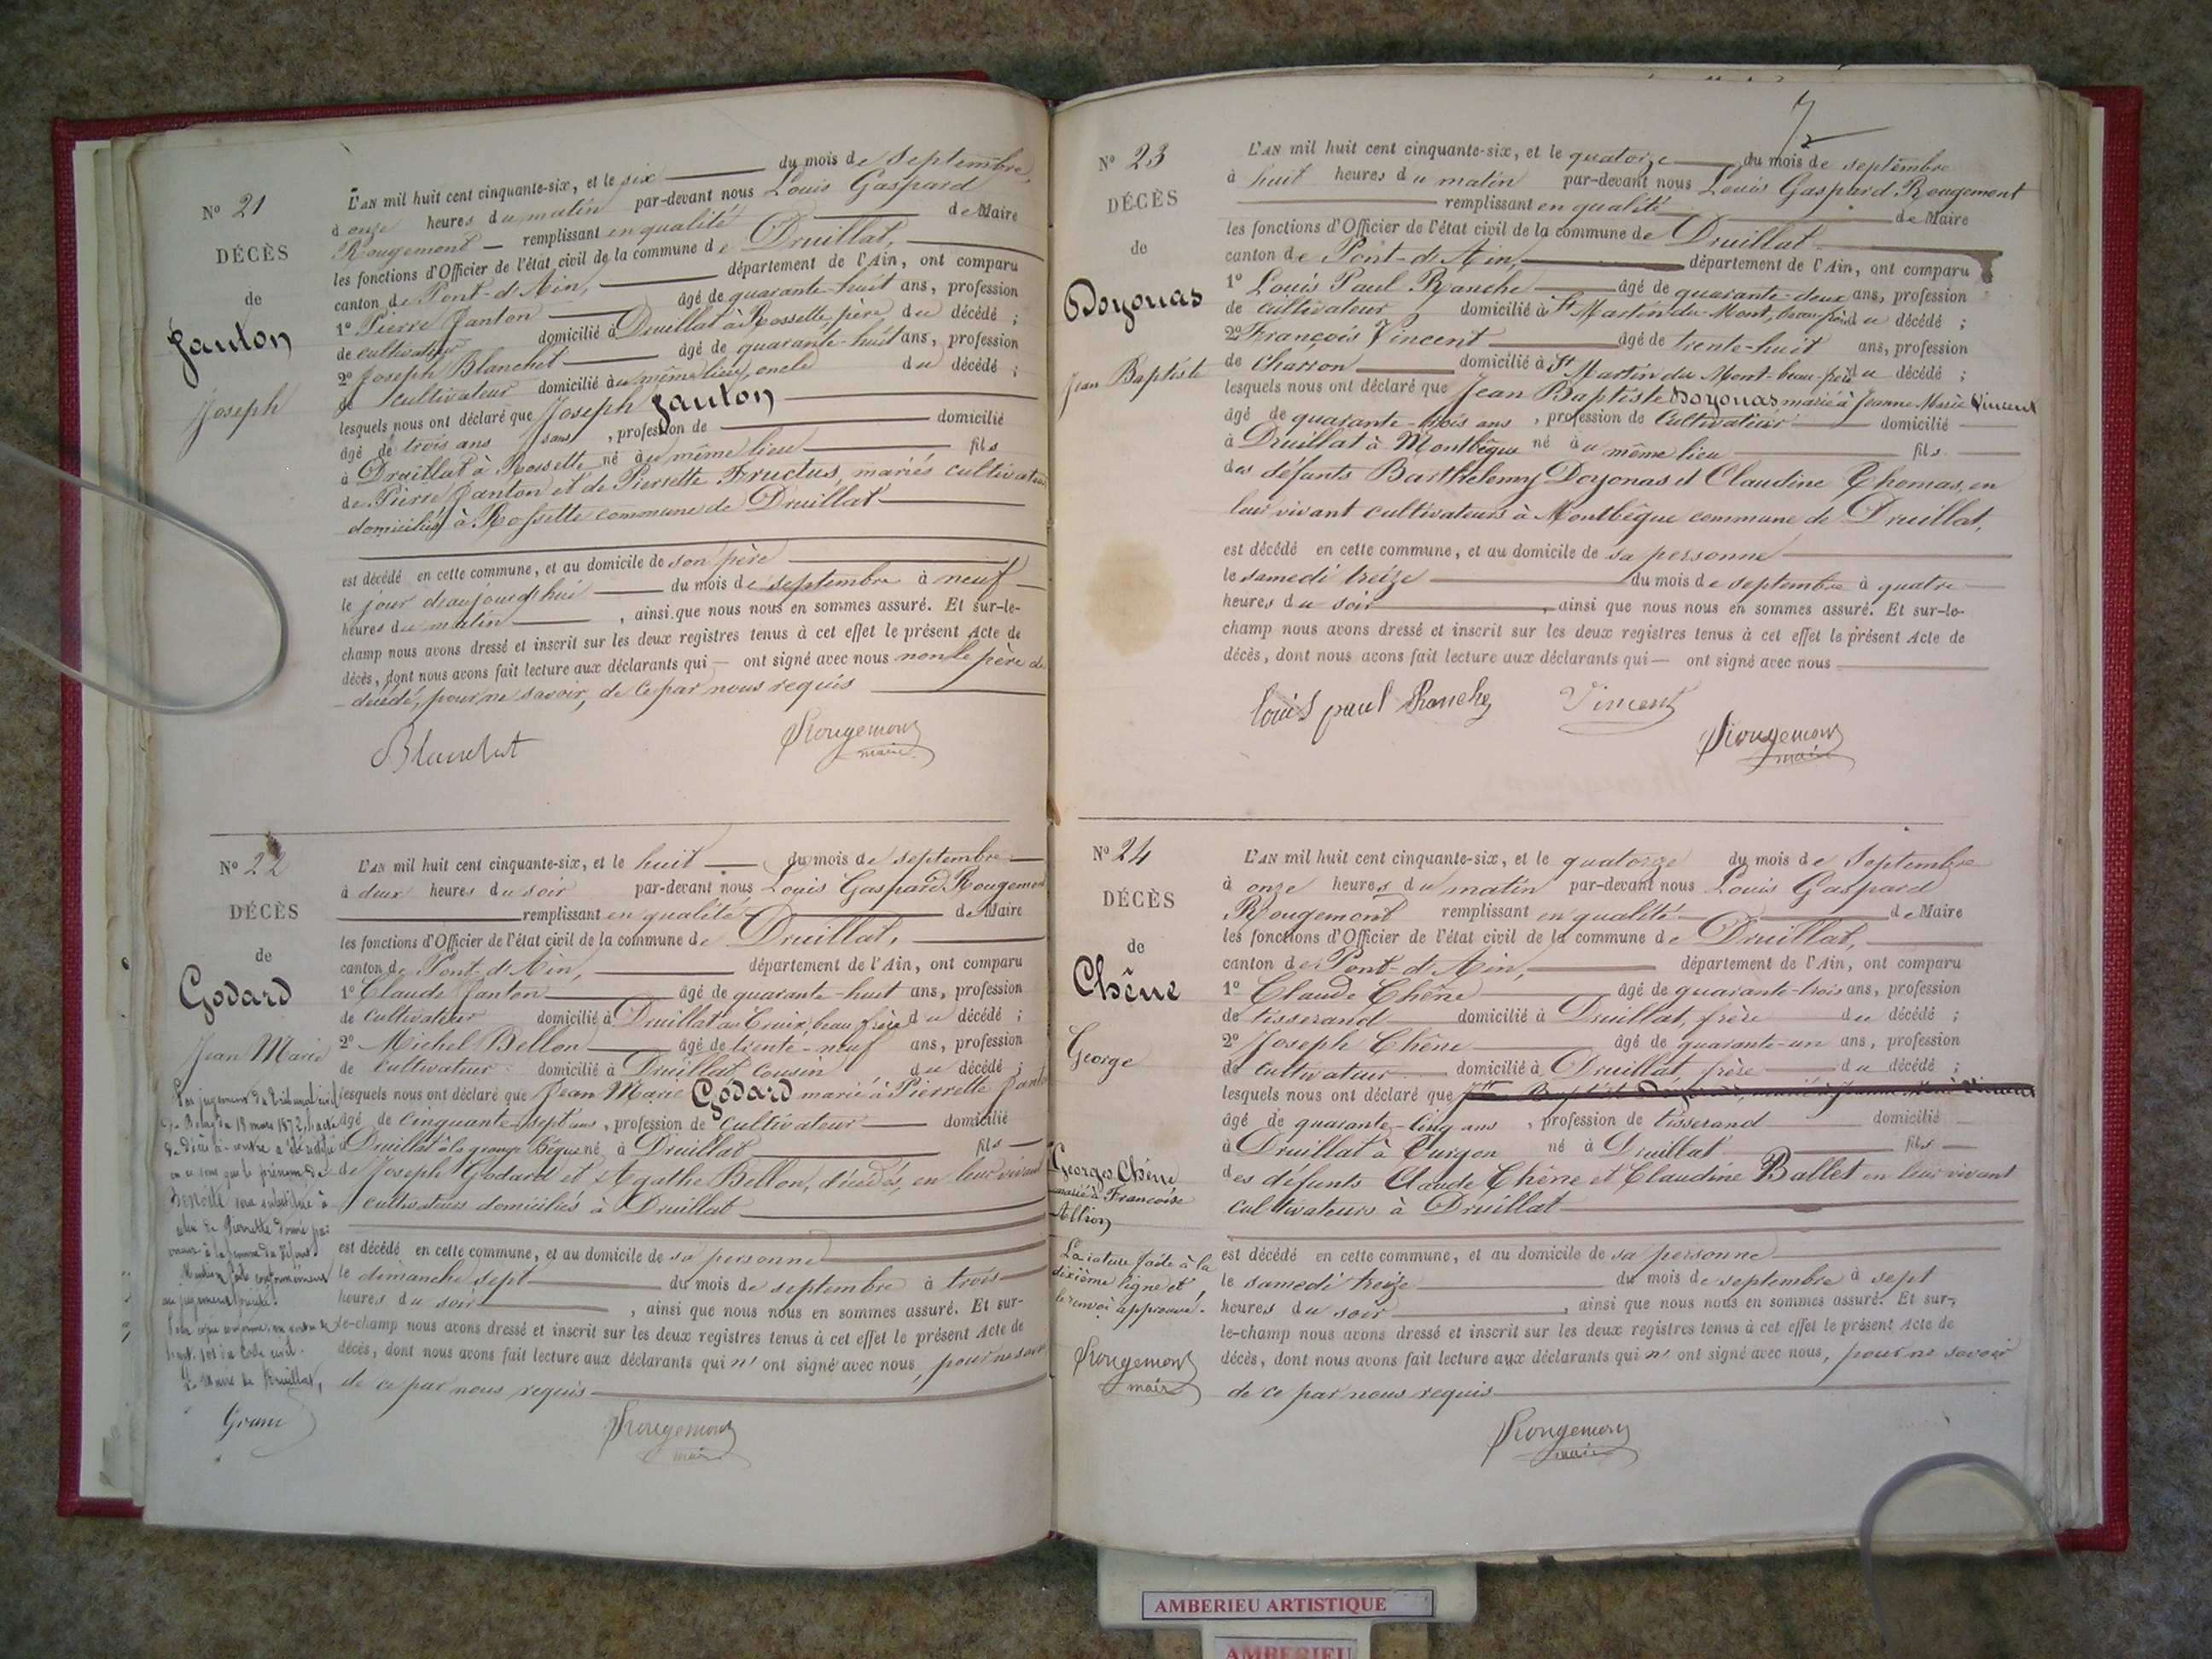 N° 21
DÉCÈS
de
Janton
Joseph
L'AN mil huit cent cinquante-six, et le six du mois de Septembre,
à onze heures du matin par-devant nous Louis Gaspard
Rougemont — remplissant en qualité de Maire
les fonctions d'Officier de l'état civil de la commune de Druillat,
canton de Pont-d'Ain, département de l'Ain, ont comparu
1° Pierre Janton âgé de quarante-huit ans, profession
de cultivateur domicilié à Druillat à Rossette, père du décédé ;
2° Joseph Blanchet âgé de quarante-huit ans, profession
de cultivateur domicilié au même lieu, oncle du décédé ;
lesquels nous ont déclaré que Joseph Janton
âgé de trois ans , sans , profession de domicilié
à Druillat à Rossette né au même lieu fils
de Pierre Janton et de Pierrette Fructus, mariés cultivateurs
domiciliés à Rossette commune de Druillat
est décédé en cette commune, et au domicile de son père
le jour d'aujourd'hui du mois de septembre à neuf
heures du matin , ainsi que nous nous en sommes assuré. Et sur-le-
champ nous avons dressé et inscrit sur les deux registres tenus à cet effet le présent Acte de
décès, dont nous avons fait lecture aux déclarants qui — ont signé avec nous non le père du
décédé, pour ne savoir, de ce par nous requis
Blanchet
Rougemont
maire
N° 22
DÉCÈS
de
Godard
Jean Marie
L'AN mil huit cent cinquante-six, et le huit du mois de septembre
à deux heures du soir par-devant nous Louis Gaspard Rougemont
remplissant en qualité de Maire
les fonctions d'Officier de l'état civil de la commune de Druillat,
canton de Pont-d'Ain, département de l'Ain, ont comparu
1° Claude Janton âgé de quarante-huit ans, profession
de cultivateur domicilié à Druillat au Cruix, beau frère du décédé ;
2° Michel Bellon âgé de trente-neuf ans, profession
de cultivateur domicilié à Druillat cousin du décédé ;
lesquels nous ont déclaré que Jean Marie Godard marié à Pierrette Janton
âgé de cinquante-sept ans , profession de cultivateur domicilié
à Druillat à la grange Bègue né à Druillat fils
de Joseph Godard et d'Agathe Bellon, décédés, en leur vivant
cultivateurs domiciliés à Druillat
est décédé en cette commune, et au domicile de sa personne
le dimanche sept du mois de septembre à trois
heures du soir , ainsi que nous nous en sommes assuré. Et sur-
le-champ nous avons dressé et inscrit sur les deux registres tenus à cet effet le présent Acte de
décès, dont nous avons fait lecture aux déclarants qui n'ont signé avec nous, pour ne savoir
de ce par nous requis
Rougemont
maire
Par jugement du tribunal civil
du 18 mars 1872, l'acte
de décès ci-contre a été rectifié
en ce sens que le prénom de
Benoîte sera substitué à
celui de Pierrette donné par
erreur à la femme du défunt.
Mention faite conformément
au jugement précité.
Le Maire de Druillat,
7
N° 23
DÉCÈS
de
Doyonas
Jean Baptiste
L'AN mil huit cent cinquante-six, et le quatorze du mois de septembre
à huit heures du matin par-devant nous Louis Gaspard Rougemont
remplissant en qualité de Maire
les fonctions d'Officier de l'état civil de la commune de Druillat
canton de Pont-d'Ain, département de l'Ain, ont comparu
1° Louis Paul Ranche âgé de quarante-deux ans, profession
de cultivateur domicilié à St Martin du-Mont, beau-frère du décédé ;
2° François Vincent âgé de trente-huit ans, profession
de Charron domicilié à St Martin du Mont-beau-frère du décédé ;
lesquels nous ont déclaré que Jean Baptiste Doyonas marié à Jeanne Marie Vincent
âgé de quarante-trois ans , profession de Cultivateur domicilié
à Druillat à Montbègue né au même lieu fils
des défunts Barthelemy Doyonas et Claudine Thomas, en
leur vivant cultivateurs à Montbègue commune de Druillat,
est décédé en cette commune, et au domicile de sa personne
le samedi treize du mois de septembre à quatre
heures du soir , ainsi que nous nous en sommes assuré. Et sur-le-
champ nous avons dressé et inscrit sur les deux registres tenus à cet effet le présent Acte de
décès, dont nous avons fait lecture aux déclarants qui — ont signé avec nous
Louis paul Ranche
Vincent
Rougemont
maire
N° 24
DÉCÈS
de
Chêne
George
L'AN mil huit cent cinquante-six, et le quatorze du mois de Septembre
à onze heures du matin par-devant nous Louis Gaspard
Rougemont remplissant en qualité de Maire
les fonctions d'Officier de l'état civil de la commune de Druillat,
canton de Pont-d'Ain, département de l'Ain, ont comparu
1° Claude Chêne âgé de quarante-trois ans, profession
de tisserand domicilié à Druillat, frère du décédé ;
2° Joseph Chêne âgé de quarante-un ans, profession
de Cultivateur domicilié à Druillat, frère du décédé ;
lesquels nous ont déclaré que
âgé de quarante-cinq ans , profession de tisserand domicilié
à Druillat à Turgon né à Druillat fils
des défunts Claude Chêne et Claudine Ballet en leur vivant
cultivateurs à Druillat
est décédé en cette commune, et au domicile de sa personne
le samedi treize du mois de septembre à sept
heures du soir , ainsi que nous nous en sommes assuré. Et sur-
le-champ nous avons dressé et inscrit sur les deux registres tenus à cet effet le présent Acte de
décès, dont nous avons fait lecture aux déclarants qui n'ont signé avec nous, pour ne savoir
de ce par nous requis
Rougemont
maire
Georges Chêne
marié à Francoise
Allion
La rature faite à la
dixième ligne et
le renvoi approuvé.
Rougemont
maire
AMBERIEU ARTISTIQUE
AMBERIEU